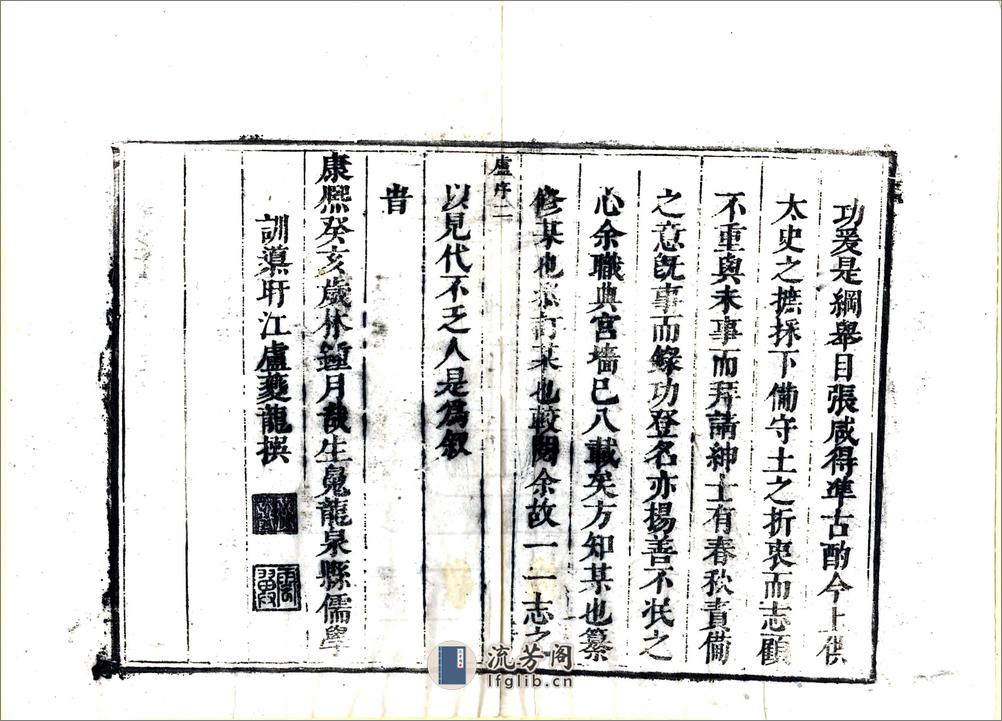 功爰是綱舉目張咸得準古酌今上供
太史之摭採下備守土之折衷而志顧
不重與未事而拜請紳士有春秋責備
之意既事而錄功登名亦揚善不泯之
心余職典宮墻已八載矣方知某也纂
修某也訂某也較閱余故一一志之
盧序二
以見代不乏人是爲叙
旹
康熙癸亥歲林鍾月哉生鳧龍泉縣儒學
訓導盱江盧夔龍撰
流芳阁
lfglib.cn